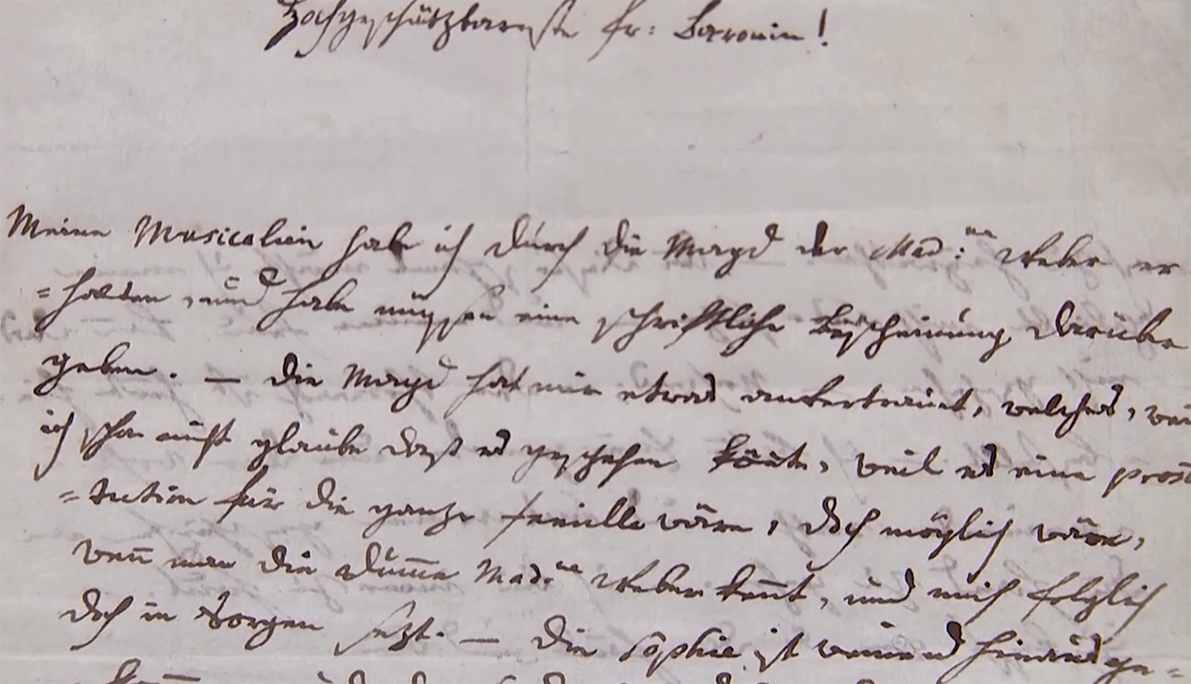 Hochgeschätzbareste fr: Baronin!
Meine Musicalien habe ich durch die Magd der Mad:me Weber er
=halten, und habe müssen eine schriftliche Bescheinung darüber
geben. — die Magd hat mir etwas anvertrauet, welches, wen
ich schon nicht glaube daß es geschehen könte, weil es eine prosti
=tution für die ganze familie wäre, doch möglich wäre,
wen man die dumme Mad:me Weber kent, und mich folglich
doch in Sorgen sezt. — die Sophie ist weinend hinaus ge=